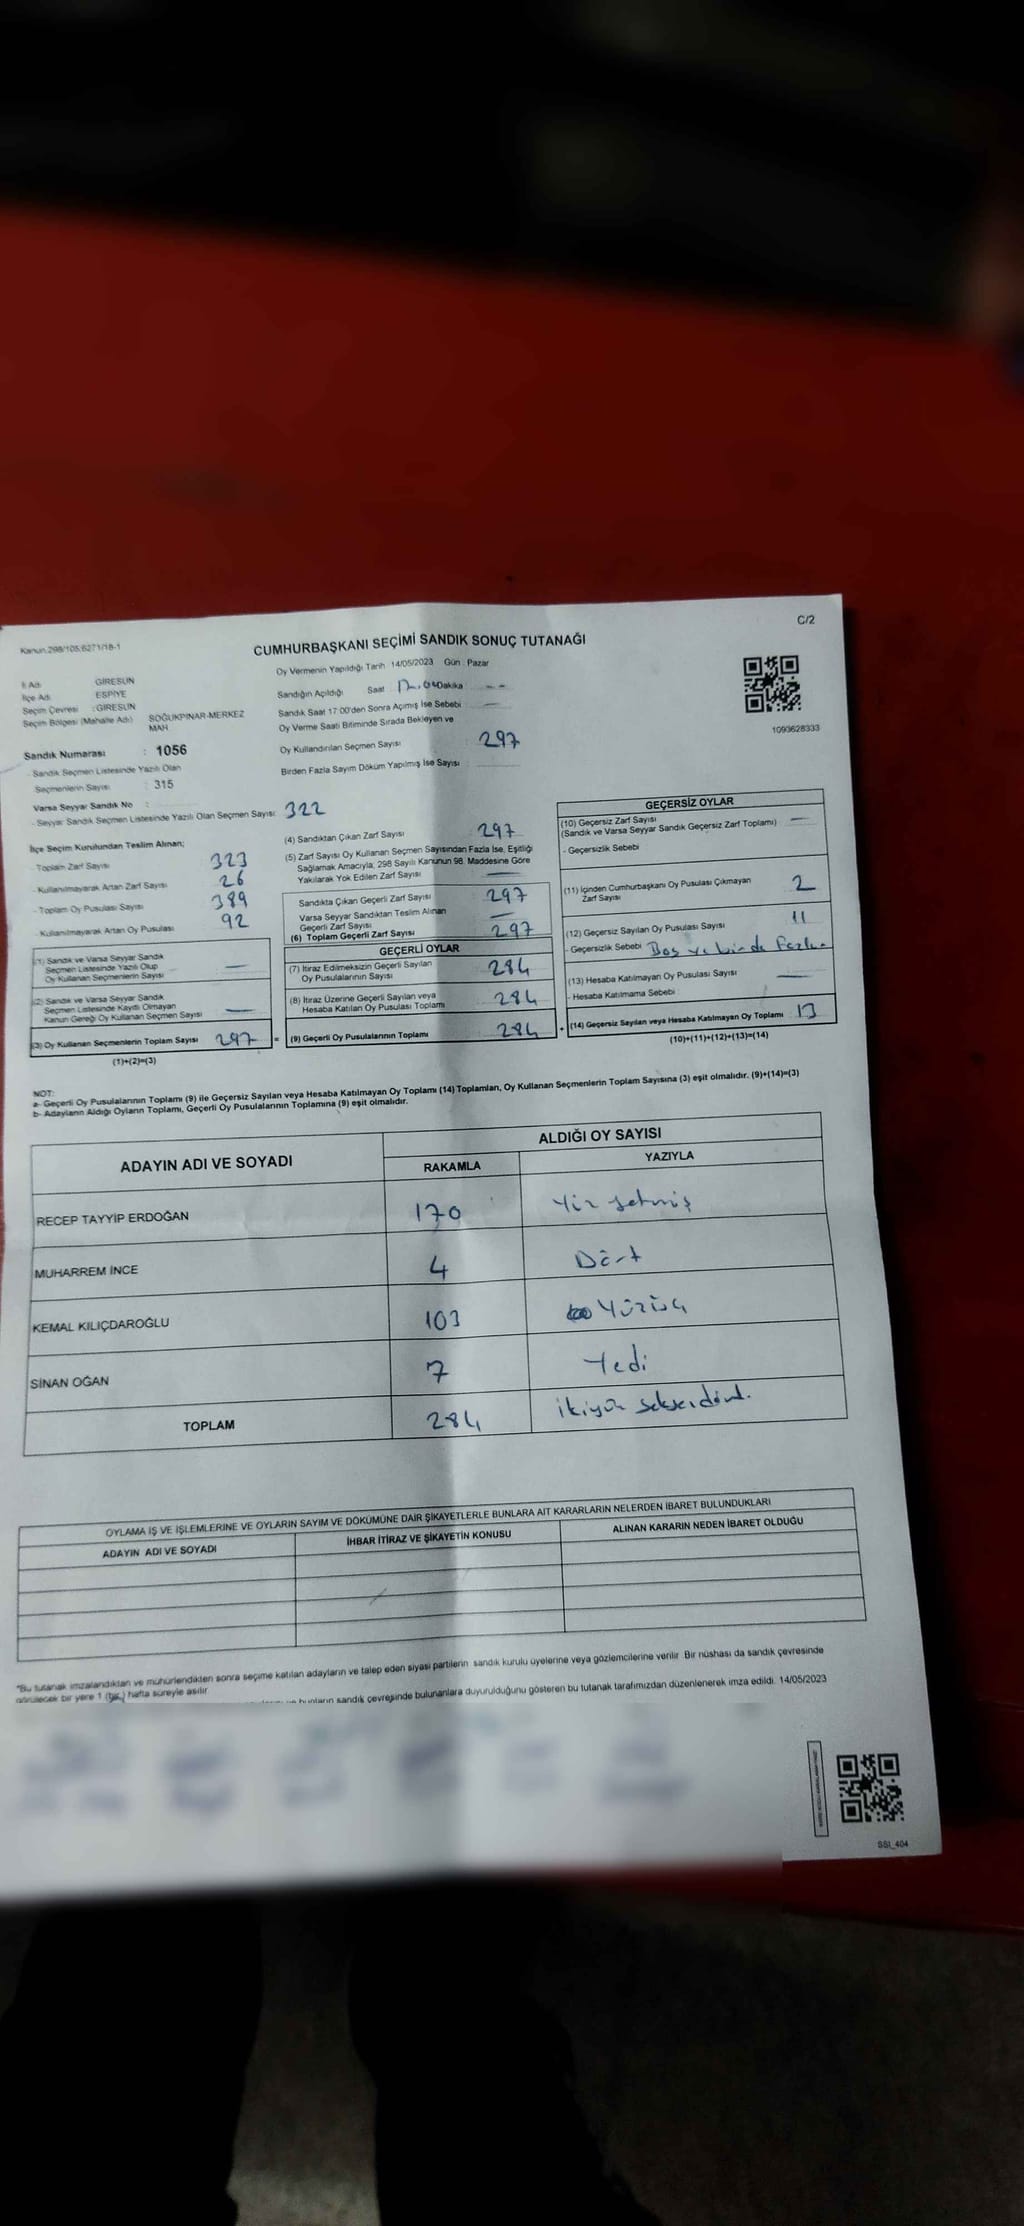 C/2
Kanun.298/105;6271/18-1
CUMHURBAŞKANI SEÇİMİ SANDIK SONUÇ TUTANAĞI
Oy Vermenin Yapıldığı Tarih 14/05/2023 Gün : Pazar
İl Adı GİRESUN
İlçe Adı ESPİYE
Seçim Çevresi :GİRESUN
Seçim Bölgesi (Mahalle Adı) SOĞUKPINAR-MERKEZ
MAH
Sandığın Açıldığı Saat Dakika : --
Sandık Saat 17:00'den Sonra Açımış İse Sebebi : —
Oy Verme Saati Bitiminde Sırada Bekleyen ve
Oy Kullandırılan Seçmen Sayısı : 297
Birden Fazla Sayım Döküm Yapılmış İse Sayısı :
1093628333
Sandık Numarası : 1056
- Sandık Seçmen Listesinde Yazılı Olan
Seçmenlerin Sayısı : 315
Varsa Seyyar Sandık No :
- Seyyar Sandık Seçmen Listesinde Yazılı Olan Seçmen Sayısı: 322
İlçe Seçim Kurulundan Teslim Alınan;
- Toplam Zarf Sayısı 323
- Kullanılmayarak Artan Zarf Sayısı 26
- Toplam Oy Pusulası Sayısı 389
- Kullanılmayarak Artan Oy Pusulası 92
(1) Sandık ve Varsa Seyyar Sandık
Seçmen Listesinde Yazılı Olup
Oy Kullanan Seçmenlerin Sayısı —
(2) Sandık ve Varsa Seyyar Sandık
Seçmen Listesinde Kayıtlı Olmayan
Kanun Gereği Oy Kullanan Seçmen Sayısı —
(3) Oy Kullanan Seçmenlerin Toplam Sayısı 297 =
(1)+(2)=(3)
(4) Sandıktan Çıkan Zarf Sayısı 297
(5) Zarf Sayısı Oy Kullanan Seçmen Sayısından Fazla İse, Eşitliği
Sağlamak Amacıyla, 298 Sayılı Kanunun 98. Maddesine Göre
Yakılarak Yok Edilen Zarf Sayısı —
Sandıkta Çıkan Geçerli Zarf Sayısı 297
Varsa Seyyar Sandıktan Teslim Alınan
Geçerli Zarf Sayısı —
(6) Toplam Geçerli Zarf Sayısı 297
GEÇERLİ OYLAR
(7) İtiraz Edilmeksizin Geçerli Sayılan
Oy Pusulalarının Sayısı 284
(8) İtiraz Üzerine Geçerli Sayılan veya
Hesaba Katılan Oy Pusulası Toplamı 284
(9) Geçerli Oy Pusulalarının Toplamı 284 +
GEÇERSİZ OYLAR
(10) Geçersiz Zarf Sayısı —
(Sandık ve Varsa Seyyar Sandık Geçersiz Zarf Toplamı)
- Geçersizlik Sebebi
(11) İçinden Cumhurbaşkanı Oy Pusulası Çıkmayan
Zarf Sayısı 2
(12) Geçersiz Sayılan Oy Pusulası Sayısı 11
- Geçersizlik Sebebi Boş ve birde fazla
(13) Hesaba Katılmayan Oy Pusulası Sayısı —
- Hesaba Katılmama Sebebi :
(14) Geçersiz Sayılan veya Hesaba Katılmayan Oy Toplamı 13
(10)+(11)+(12)+(13)=(14)
NOT:
a- Geçerli Oy Pusulalarının Toplamı (9) ile Geçersiz Sayılan veya Hesaba Katılmayan Oy Toplamı (14) Toplamları, Oy Kullanan Seçmenlerin Toplam Sayısına (3) eşit olmalıdır. (9)+(14)=(3)
b- Adayların Aldığı Oyların Toplamı, Geçerli Oy Pusulalarının Toplamına (9) eşit olmalıdır.
ADAYIN ADI VE SOYADI ALDIĞI OY SAYISI
RAKAMLA YAZIYLA
RECEP TAYYİP ERDOĞAN 170 Yüz yetmiş
MUHARREM İNCE 4 Dört
KEMAL KILIÇDAROĞLU 103 Yüzüç
SİNAN OĞAN 7 Yedi
TOPLAM 284 ikiyüz seksendört.
OYLAMA İŞ VE İŞLEMLERİNE VE OYLARIN SAYIM VE DÖKÜMÜNE DAİR ŞİKAYETLERLE BUNLARA AİT KARARLARIN NELERDEN İBARET BULUNDUKLARI
ADAYIN ADI VE SOYADI İHBAR İTİRAZ VE ŞİKAYETİN KONUSU ALINAN KARARIN NEDEN İBARET OLDUĞU
*Bu tutanak imzalandıktan ve mühürlendikten sonra seçime katılan adayların ve talep eden siyasi partilerin sandık kurulu üyelerine veya gözlemcilerine verilir. Bir nüshası da sandık çevresinde
görülecek bir yere 1 (bir) hafta süreyle asılır.
bunların sandık çevresinde bulunanlara duyurulduğunu gösteren bu tutanak tarafımızdan düzenlenerek imza edildi. 14/05/2023
SSI_404